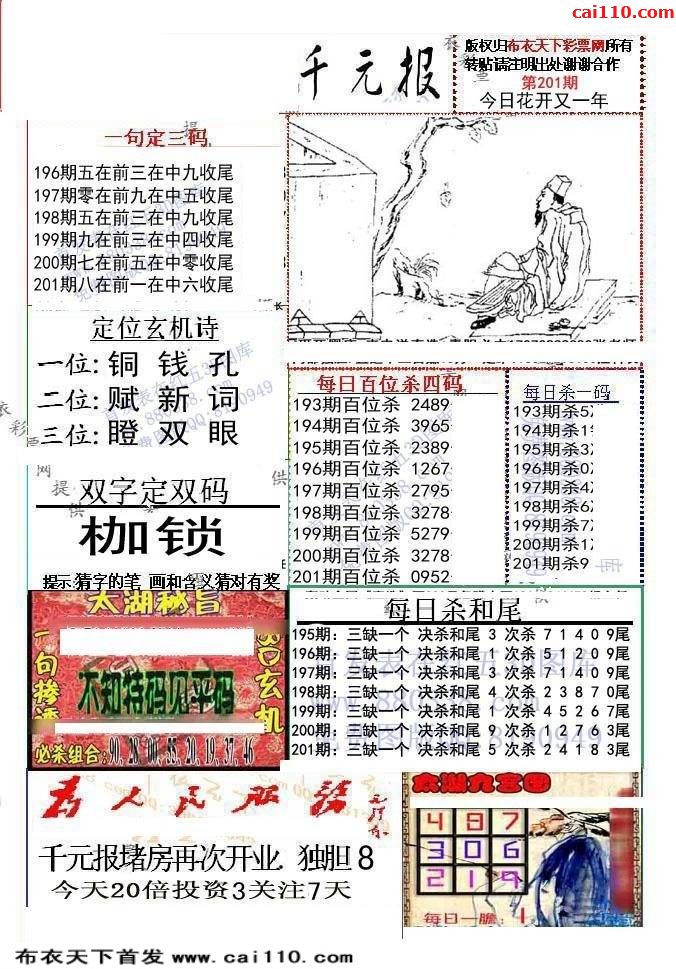 cai110.com
千元报
版权归布衣天下彩票网所有
转贴请注明出处谢谢合作
第201期
今日花开又一年
一句定三码
196期五在前三在中九收尾
197期零在前九在中五收尾
198期五在前三在中九收尾
199期九在前三在中四收尾
200期七在前五在中零收尾
201期八在前一在中六收尾
定位玄机诗
一位: 铜 钱 孔
二位: 赋 新 词
三位: 瞪 双 眼
双字定双码
枷锁
提示猜字的笔 画和含义猜对有奖
每日百位杀四码
193期百位杀 2489
194期百位杀 3965
195期百位杀 2389
196期百位杀 1267
197期百位杀 2795
198期百位杀 3278
199期百位杀 5279
200期百位杀 3278
201期百位杀 0952
每日杀一码
193期杀5
194期杀1
195期杀3
196期杀0
197期杀4
198期杀6
199期杀7
200期杀1
201期杀9
太湖秘旨
不知特码见平码
必杀组合: 90.28.00.55.20.19.37.46
每日杀和尾
195期: 三缺一个 决杀和尾 3 次杀 7 1 4 0 9尾
196期: 三缺一个 决杀和尾 1 次杀 5 1 2 0 9尾
197期: 三缺一个 决杀和尾 7 次杀 1 4 1 0 9尾
198期: 三缺一个 决杀和尾 4 次杀 2 3 8 7 0尾
199期: 三缺一个 决杀和尾 1 次杀 4 5 2 6 7尾
200期: 三缺一个 决杀和尾 9 次杀 1 2 7 6 3尾
201期: 三缺一个 决杀和尾 5 次杀 2 4 1 8 3尾
为人民服务
千元报堵房再次开业 独胆 8
今天20倍投资3关注7天
太湖九宫图
4 8 7
3 0 6
2 1 9
每日一胆: 1
布衣天下首发 www.cai110.com